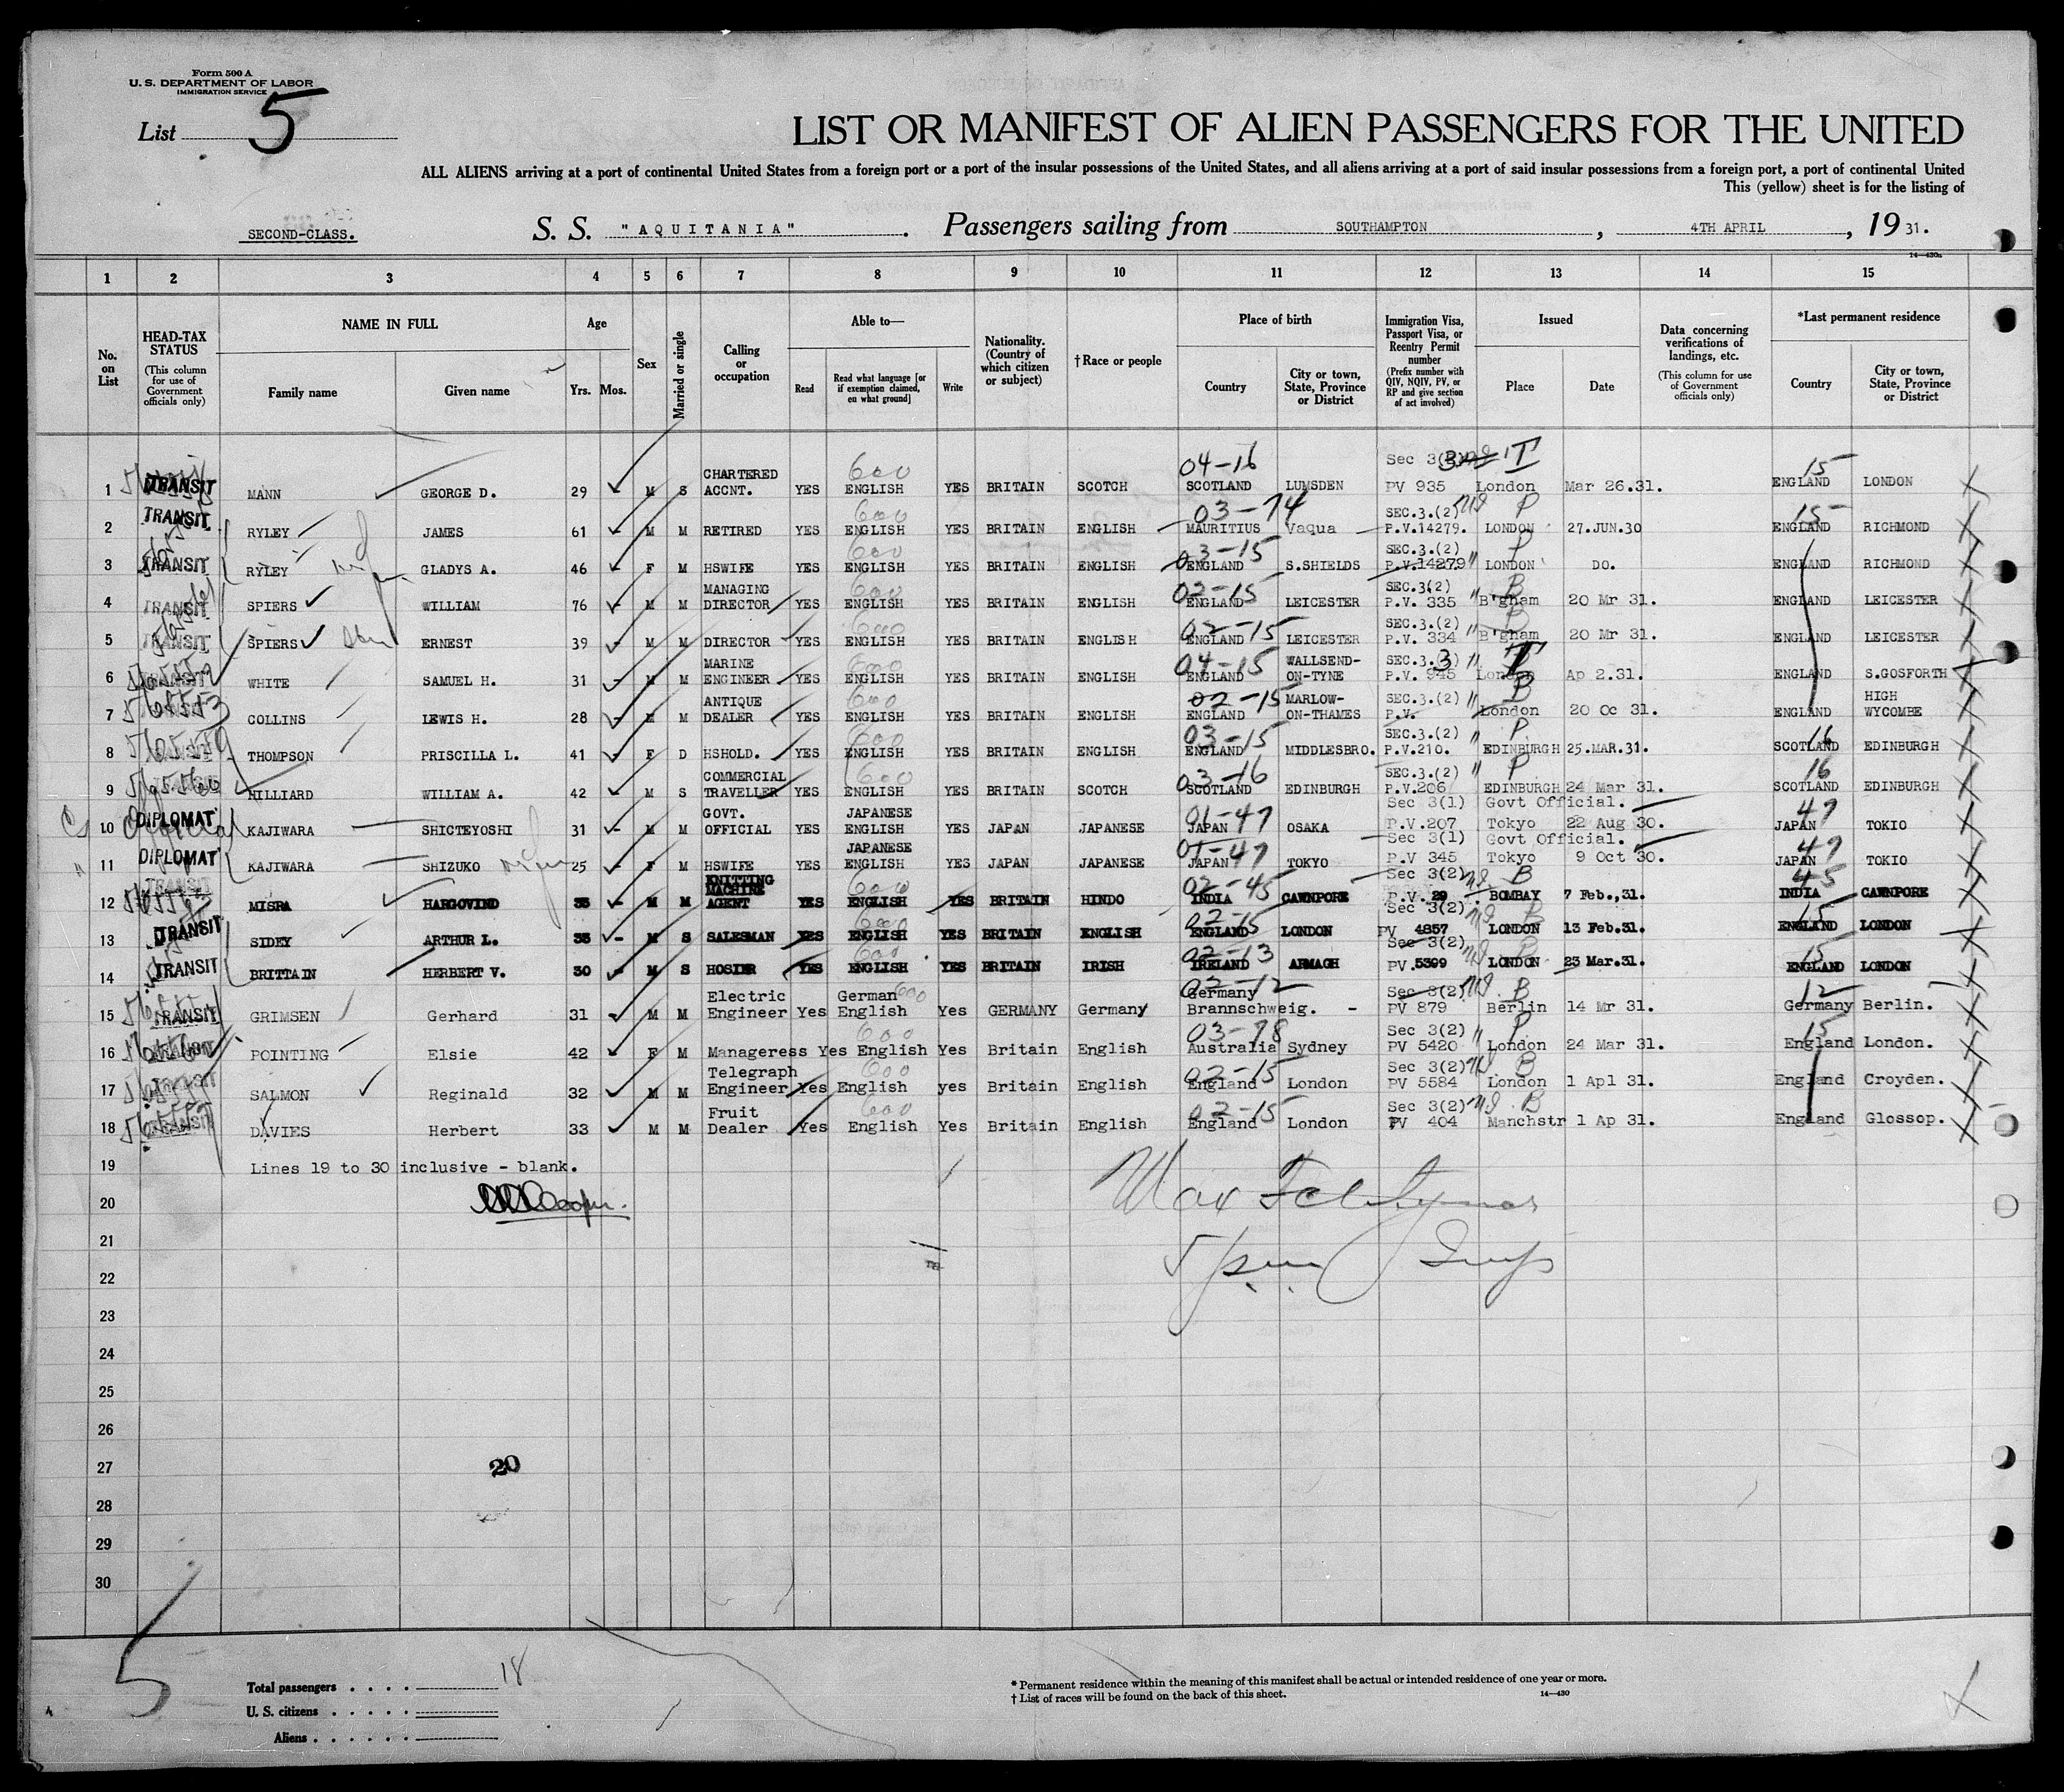 Form 500 A
U. S. DEPARTMENT OF LABOR
IMMIGRATION SERVICE
List 5
LIST OR MANIFEST OF ALIEN PASSENGERS FOR THE UNITED
ALL ALIENS arriving at a port of continental United States from a foreign port or a port of the insular possessions of the United States, and all aliens arriving at a port of said insular possessions from a foreign port, a port of continental United
This (yellow) sheet is for the listing of
SECOND-CLASS. S. S. "AQUITANIA". Passengers sailing from SOUTHAMPTON, 4TH APRIL, 1931.
14—430a
1 2 3 4 5 6 7 8 9 10 11 12 13 14 15
No. on List
HEAD-TAX STATUS (This column for use of Government officials only)
NAME IN FULL Family name Given name
Age Yrs. Mos.
Sex
Married or single
Calling or occupation
Able to— Read Read what language [or if exemption claimed, on what ground] Write
Nationality. (Country of which citizen or subject)
†Race or people
Place of birth Country City or town, State, Province or District
Immigration Visa, Passport Visa, or Reentry Permit number (Prefix number with QIV, NQIV, PV, or RP and give section of act involved)
Issued Place Date
Data concerning verifications of landings, etc. (This column for use of Government officials only)
*Last permanent residence Country City or town, State, Province or District
1 TRANSIT MANN GEORGE D. 29 M S CHARTERED ACCNT. YES 600 ENGLISH YES BRITAIN SCOTCH 04-16 SCOTLAND LUMSDEN Sec 3 PV 935 T London Mar 26.31. 15 ENGLAND LONDON
2 TRANSIT RYLEY JAMES 61 M M RETIRED YES 600 ENGLISH YES BRITAIN ENGLISH 03-74 MAURITIUS Vaqua SEC.3.(2) P.V.14279. P LONDON 27.JUN.30 15 ENGLAND RICHMOND
3 TRANSIT RYLEY GLADYS A. 46 F M HSWIFE YES 600 ENGLISH YES BRITAIN ENGLISH 03-15 ENGLAND S.SHIELDS SEC.3.(2) P.V.14279 P LONDON DO. ENGLAND RICHMOND
4 TRANSIT SPIERS WILLIAM 76 M M MANAGING DIRECTOR YES 600 ENGLISH YES BRITAIN ENGLISH 02-15 ENGLAND LEICESTER SEC.3(2) P.V. 335 B B'gham 20 Mr 31. ENGLAND LEICESTER
5 TRANSIT SPIERS ERNEST 39 M M DIRECTOR YES 600 ENGLISH YES BRITAIN ENGLISH 02-15 ENGLAND LEICESTER SEC.3.(2) P.V. 334 B B'gham 20 Mr 31. ENGLAND LEICESTER
6 WHITE SAMUEL H. 31 M M MARINE ENGINEER YES 600 ENGLISH YES BRITAIN ENGLISH 04-15 ENGLAND WALLSEND-ON-TYNE SEC.3.3) P.V. 945 T London Ap 2.31. ENGLAND S.GOSFORTH
7 COLLINS LEWIS H. 28 M M ANTIQUE DEALER YES 600 ENGLISH YES BRITAIN ENGLISH 02-15 ENGLAND MARLOW-ON-THAMES SEC.3.(2) P.V. B London 20 Oc 31. ENGLAND HIGH WYCOMBE
8 THOMPSON PRISCILLA L. 41 F D HSHOLD. YES 600 ENGLISH YES BRITAIN ENGLISH 03-15 ENGLAND MIDDLESBRO. SEC.3.(2) P.V.210. P EDINBURGH 25.MAR.31. 16 SCOTLAND EDINBURGH
9 HILLIARD WILLIAM A. 42 M S COMMERCIAL TRAVELLER YES 600 ENGLISH YES BRITAIN SCOTCH 03-16 SCOTLAND EDINBURGH SEC.3.(2) P.V.206 P EDINBURGH 24 Mar 31. 16 SCOTLAND EDINBURGH
10 DIPLOMAT Official KAJIWARA SHICTEYOSHI 31 M M GOVT. OFFICIAL YES JAPANESE ENGLISH YES JAPAN JAPANESE 01-47 JAPAN OSAKA Sec 3(1) Govt Official. P.V.207 Tokyo 22 Aug 30. 47 JAPAN TOKIO
11 DIPLOMAT KAJIWARA SHIZUKO 25 F M HSWIFE YES JAPANESE ENGLISH YES JAPAN JAPANESE 01-47 JAPAN TOKYO Sec 3(1) Govt Official. P.V 345 Tokyo 9 Oct 30. 47 JAPAN TOKIO
12 TRANSIT MISRA HARGOVIND 35 M M KNITTING MACHINE AGENT YES 600 ENGLISH YES BRITAIN HINDO 02-45 INDIA CAWNPORE Sec 3(2) P.V. 29 B BOMBAY 7 Feb.,31. 45 INDIA CAWNPORE
13 TRANSIT SIDEY ARTHUR L. 35 M S SALESMAN YES 600 ENGLISH YES BRITAIN ENGLISH 02-15 ENGLAND LONDON Sec 3(2) PV 4857 B LONDON 13 Feb.31. 15 ENGLAND LONDON
14 TRANSIT BRITTAIN HERBERT V. 30 M S HOSIER YES 600 ENGLISH YES BRITAIN IRISH 02-13 IRELAND ARMAGH Sec 3(2) PV.5309 B LONDON 23 Mar.31. 15 ENGLAND LONDON
15 TRANSIT GRIMSEN Gerhard 31 M M Electric Engineer Yes German 600 English Yes GERMANY Germany 02-12 Germany Brannschweig. - Sec 3(2) PV 879 B Berlin 14 Mr 31. 12 Germany Berlin.
16 POINTING Elsie 42 F M Manageress Yes 600 English Yes Britain English 03-78 Australia Sydney Sec 3(2) PV 5420 P London 24 Mar 31. 15 England London.
17 SALMON Reginald 32 M M Telegraph Engineer Yes 600 English yes Britain English 02-15 England London Sec 3(2) PV 5584 B London 1 Apl 31. England Croyden.
18 DAVIES Herbert 33 M M Fruit Dealer Yes 600 English Yes Britain English 02-15 England London Sec 3(2) PV 404 B Manchstr 1 Ap 31. England Glossop.
19 Lines 19 to 30 inclusive - blank.
20
21
22
23
24
25
26
27 20
28
29
30
5
Total passengers . . . . 18
U. S. citizens . . . . .
Aliens . . . . . .
* Permanent residence within the meaning of this manifest shall be actual or intended residence of one year or more.
† List of races will be found on the back of this sheet. 14—430